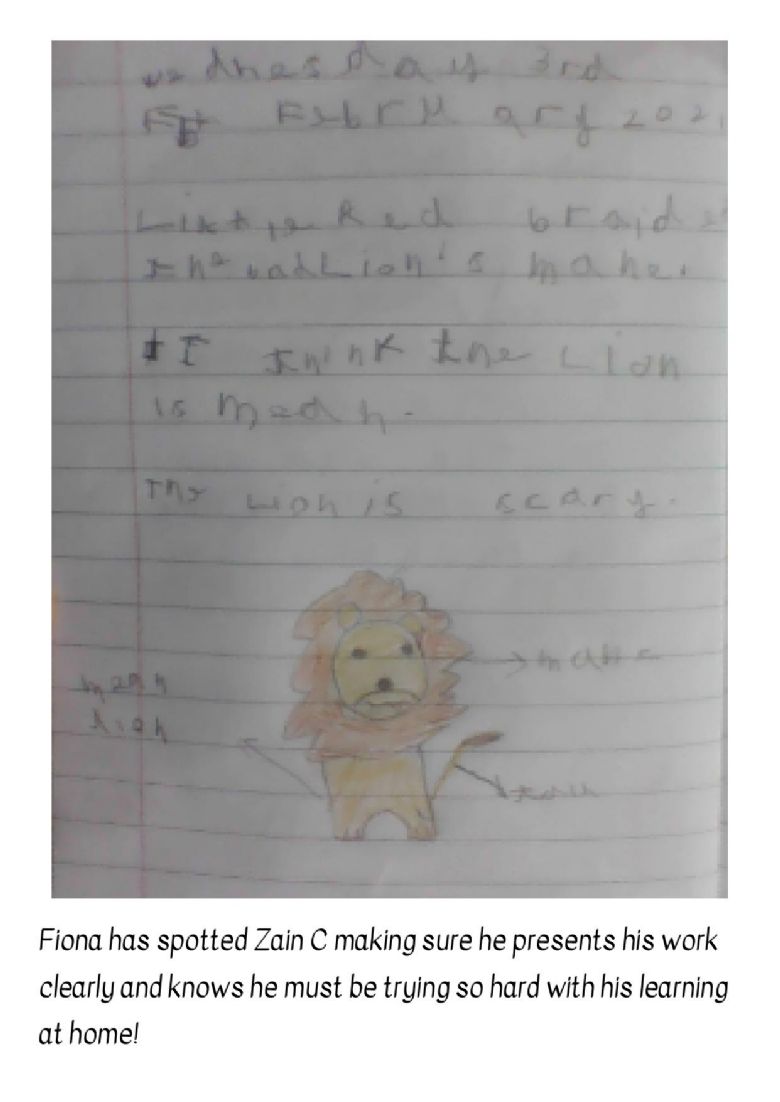 wednesday 3rd
February 202
Red braide
the Lion's mane.
I think the Lion
is mean.
The Lion is scary.
mane
mean
lion
Fiona has spotted Zain C making sure he presents his work
clearly and knows he must be trying so hard with his learning
at home!